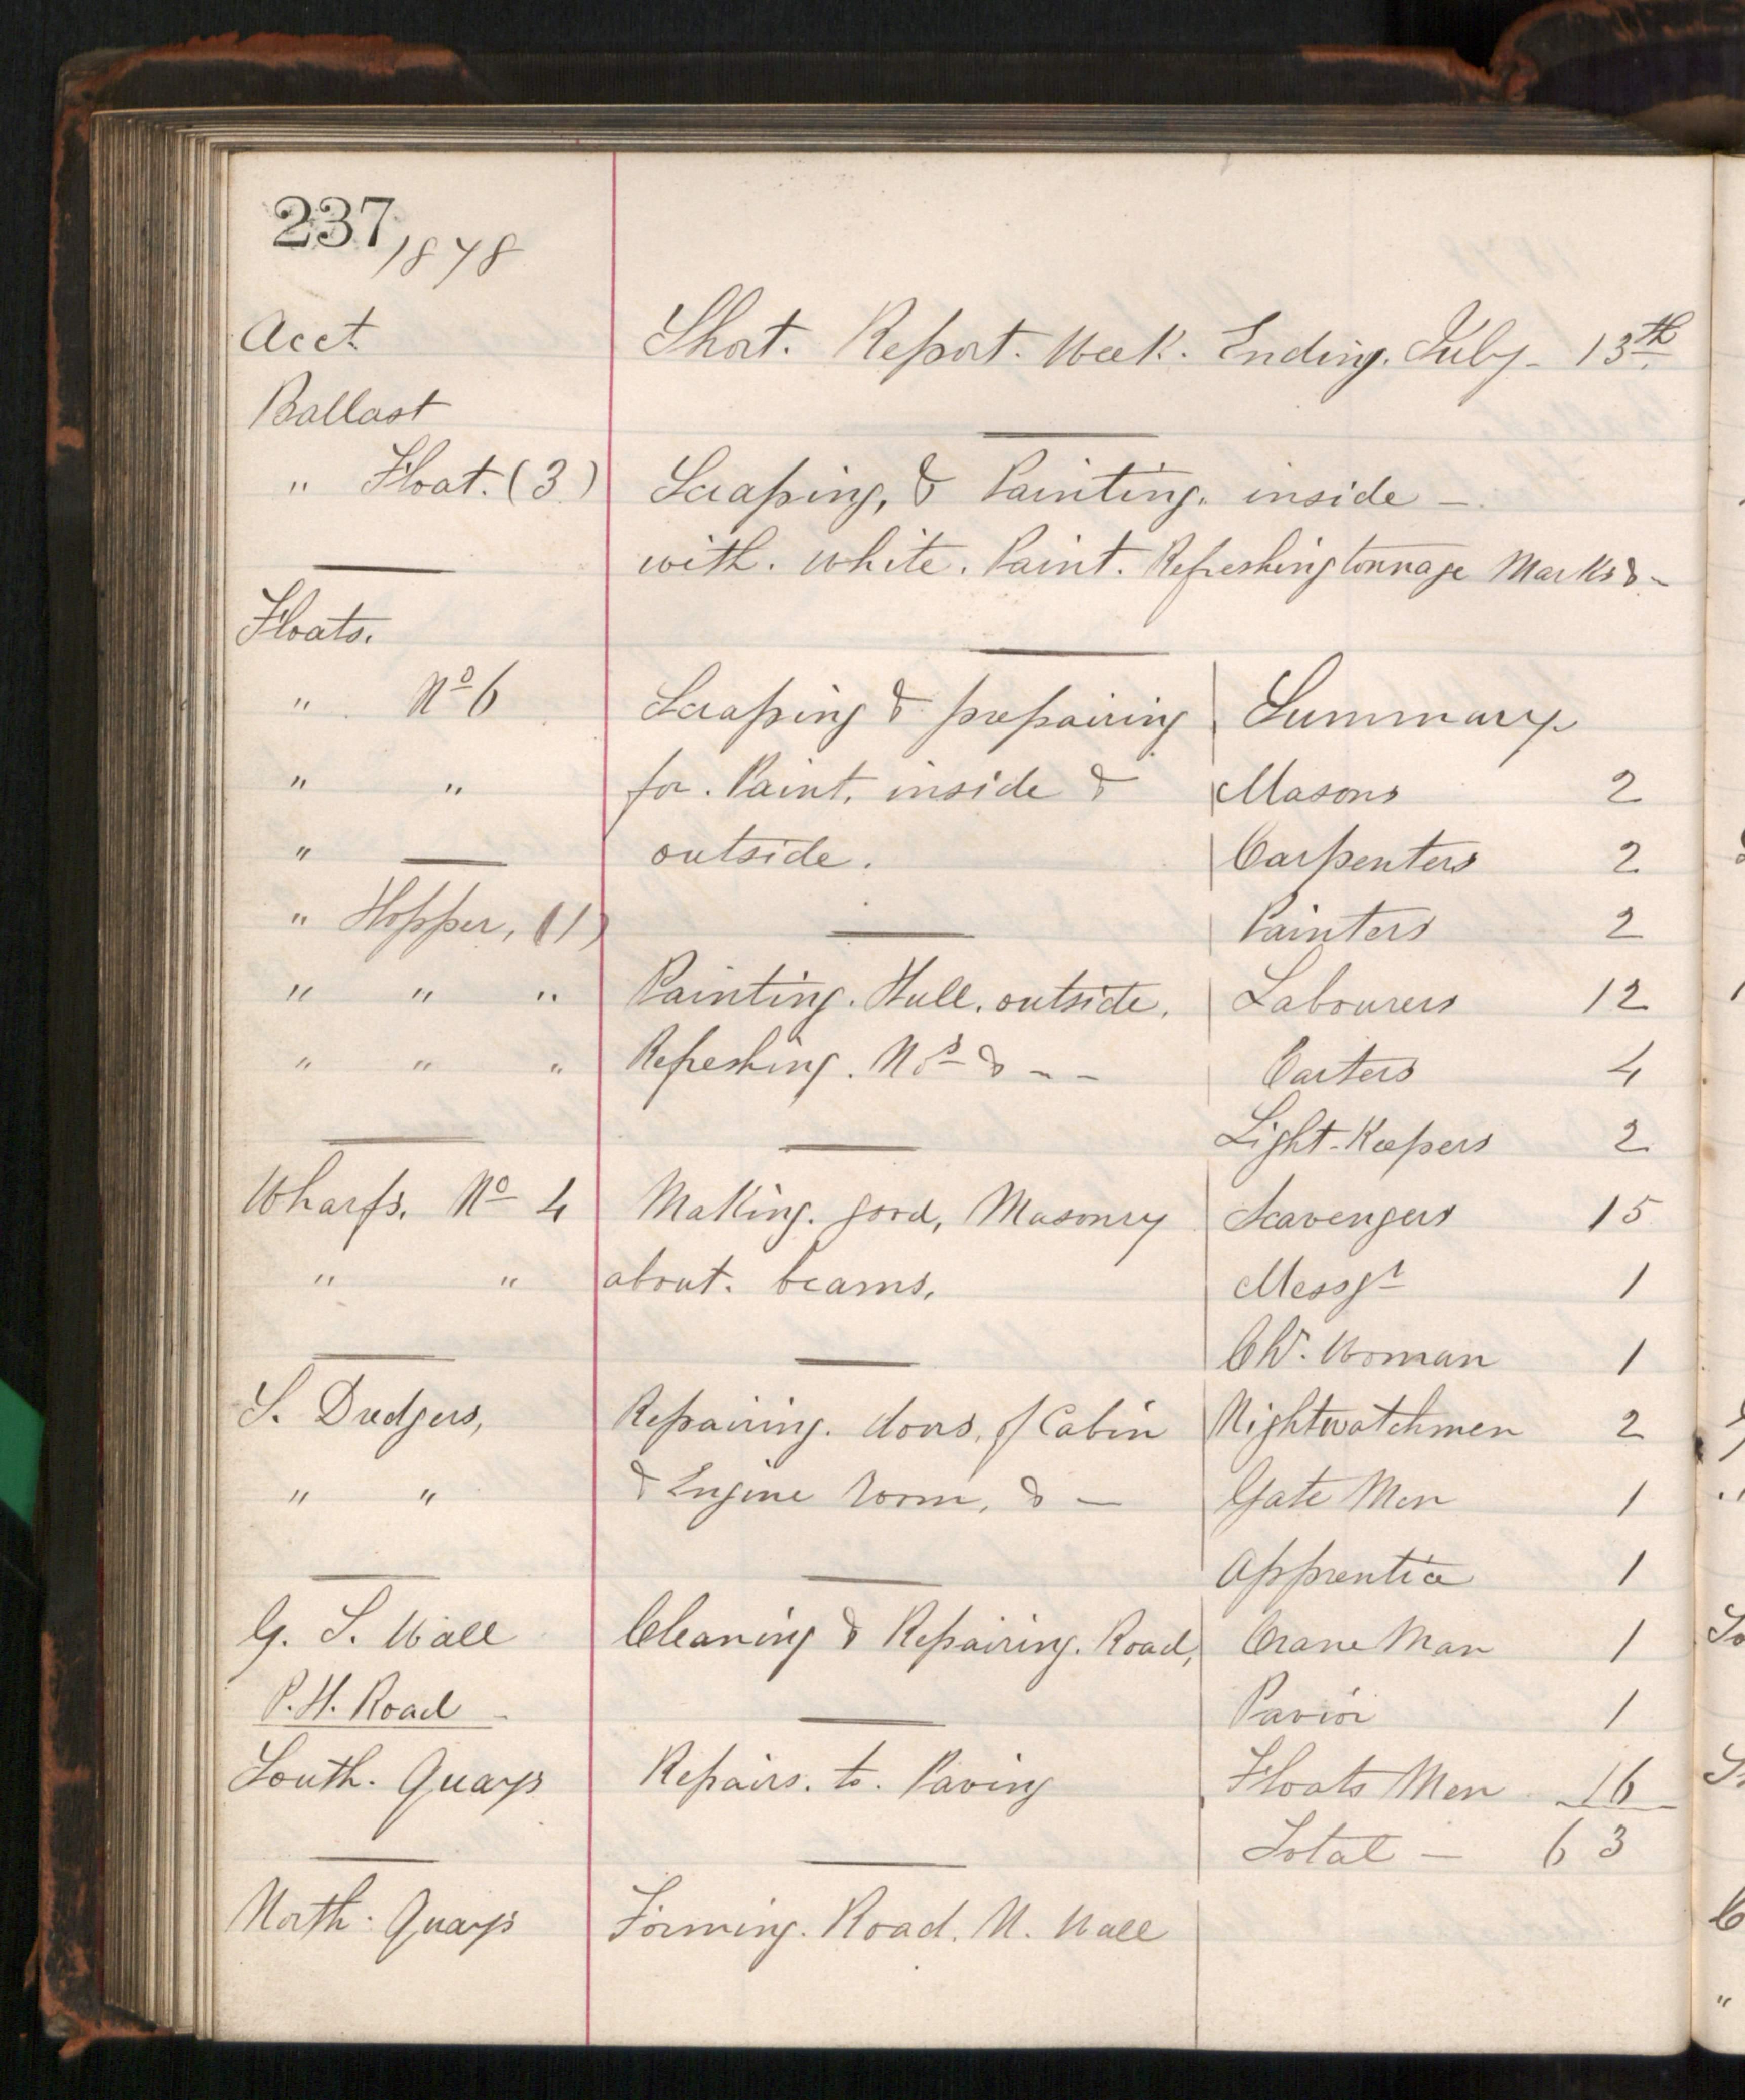 237, 1878
Acct. Short. Report. Week. Ending. July - 13th.
Ballast
" Float. (3) Scraping, & Painting. inside -
with. white. Paint. Refreshing tonnage Marks & -
Floats.
" No 6 Scraping & prepairing Summary
" " for. Paint. inside & Masons 2
" — outside. Carpenters 2
" Hopper, (1) Painters 2
" " " Painting. Hull. outside. Labourers 12
" " " Refreshing. Nos & - - Carters 4
Light-Keepers 2
Wharfs. No 4 Making. good, Masonry Scavengers 15
" " about. beams. Messgr 1
Chr. Woman 1
S. Dredgers, Repairing. doors, of Cabin Nightwatchmen 2
" " & Engine Room, & — Gate Men 1
Apprentice 1
G. S. Wall Cleaning & Repairing. Road, Crane Man 1
P. H. Road - Pavior 1
South. Quays Repairs. to. Paving Floats Men 16
Total — 63
North. Quays Forming. Road. N. Wall